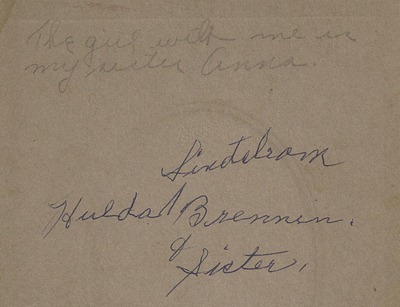 The girl with me is
my sister Anna.
Lindstrom
Hulda Brennen.
&
Sister.